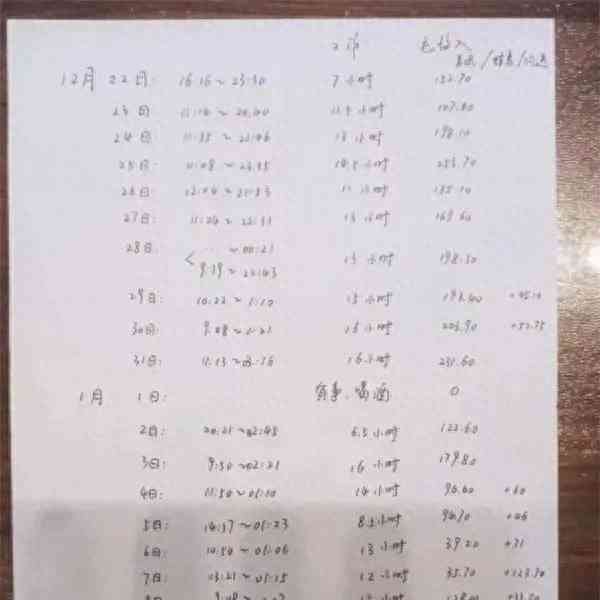 工作 毛收入
12月 22日: 16:16~23:30 7小时 132.70
23日 11:16~20:40 107.80
24日 11:35~22:06 13小时 198.10
25日: 11:08~23:35 14.5小时 253.70
26日 12:04~21:53 11小时 135.10
27日: 11:24~22:31 13小时 169.60
28日: ~00:21
< 9:19~22:43 13小时 198.30
29日: 10:22~1:10 15小时 193.40
30日: 9:08~1:21 16小时 203.90 +52.75
31日: 11:13~03:16 16小时 231.60
1月 1日: 有事、喝酒 0
2日: 20:21~02:48 6.5小时 122.60
3日: 9:50~02:21 16小时 179.80
4日: 11:50~01:10 14小时 96.60 +60
5日: 16:37~01:23 8.5小时 96.90 +66
6日: 10:50~01:06 13小时 39.20 +31
7日: 13:21~01:15 12小时 35.70 +123.70